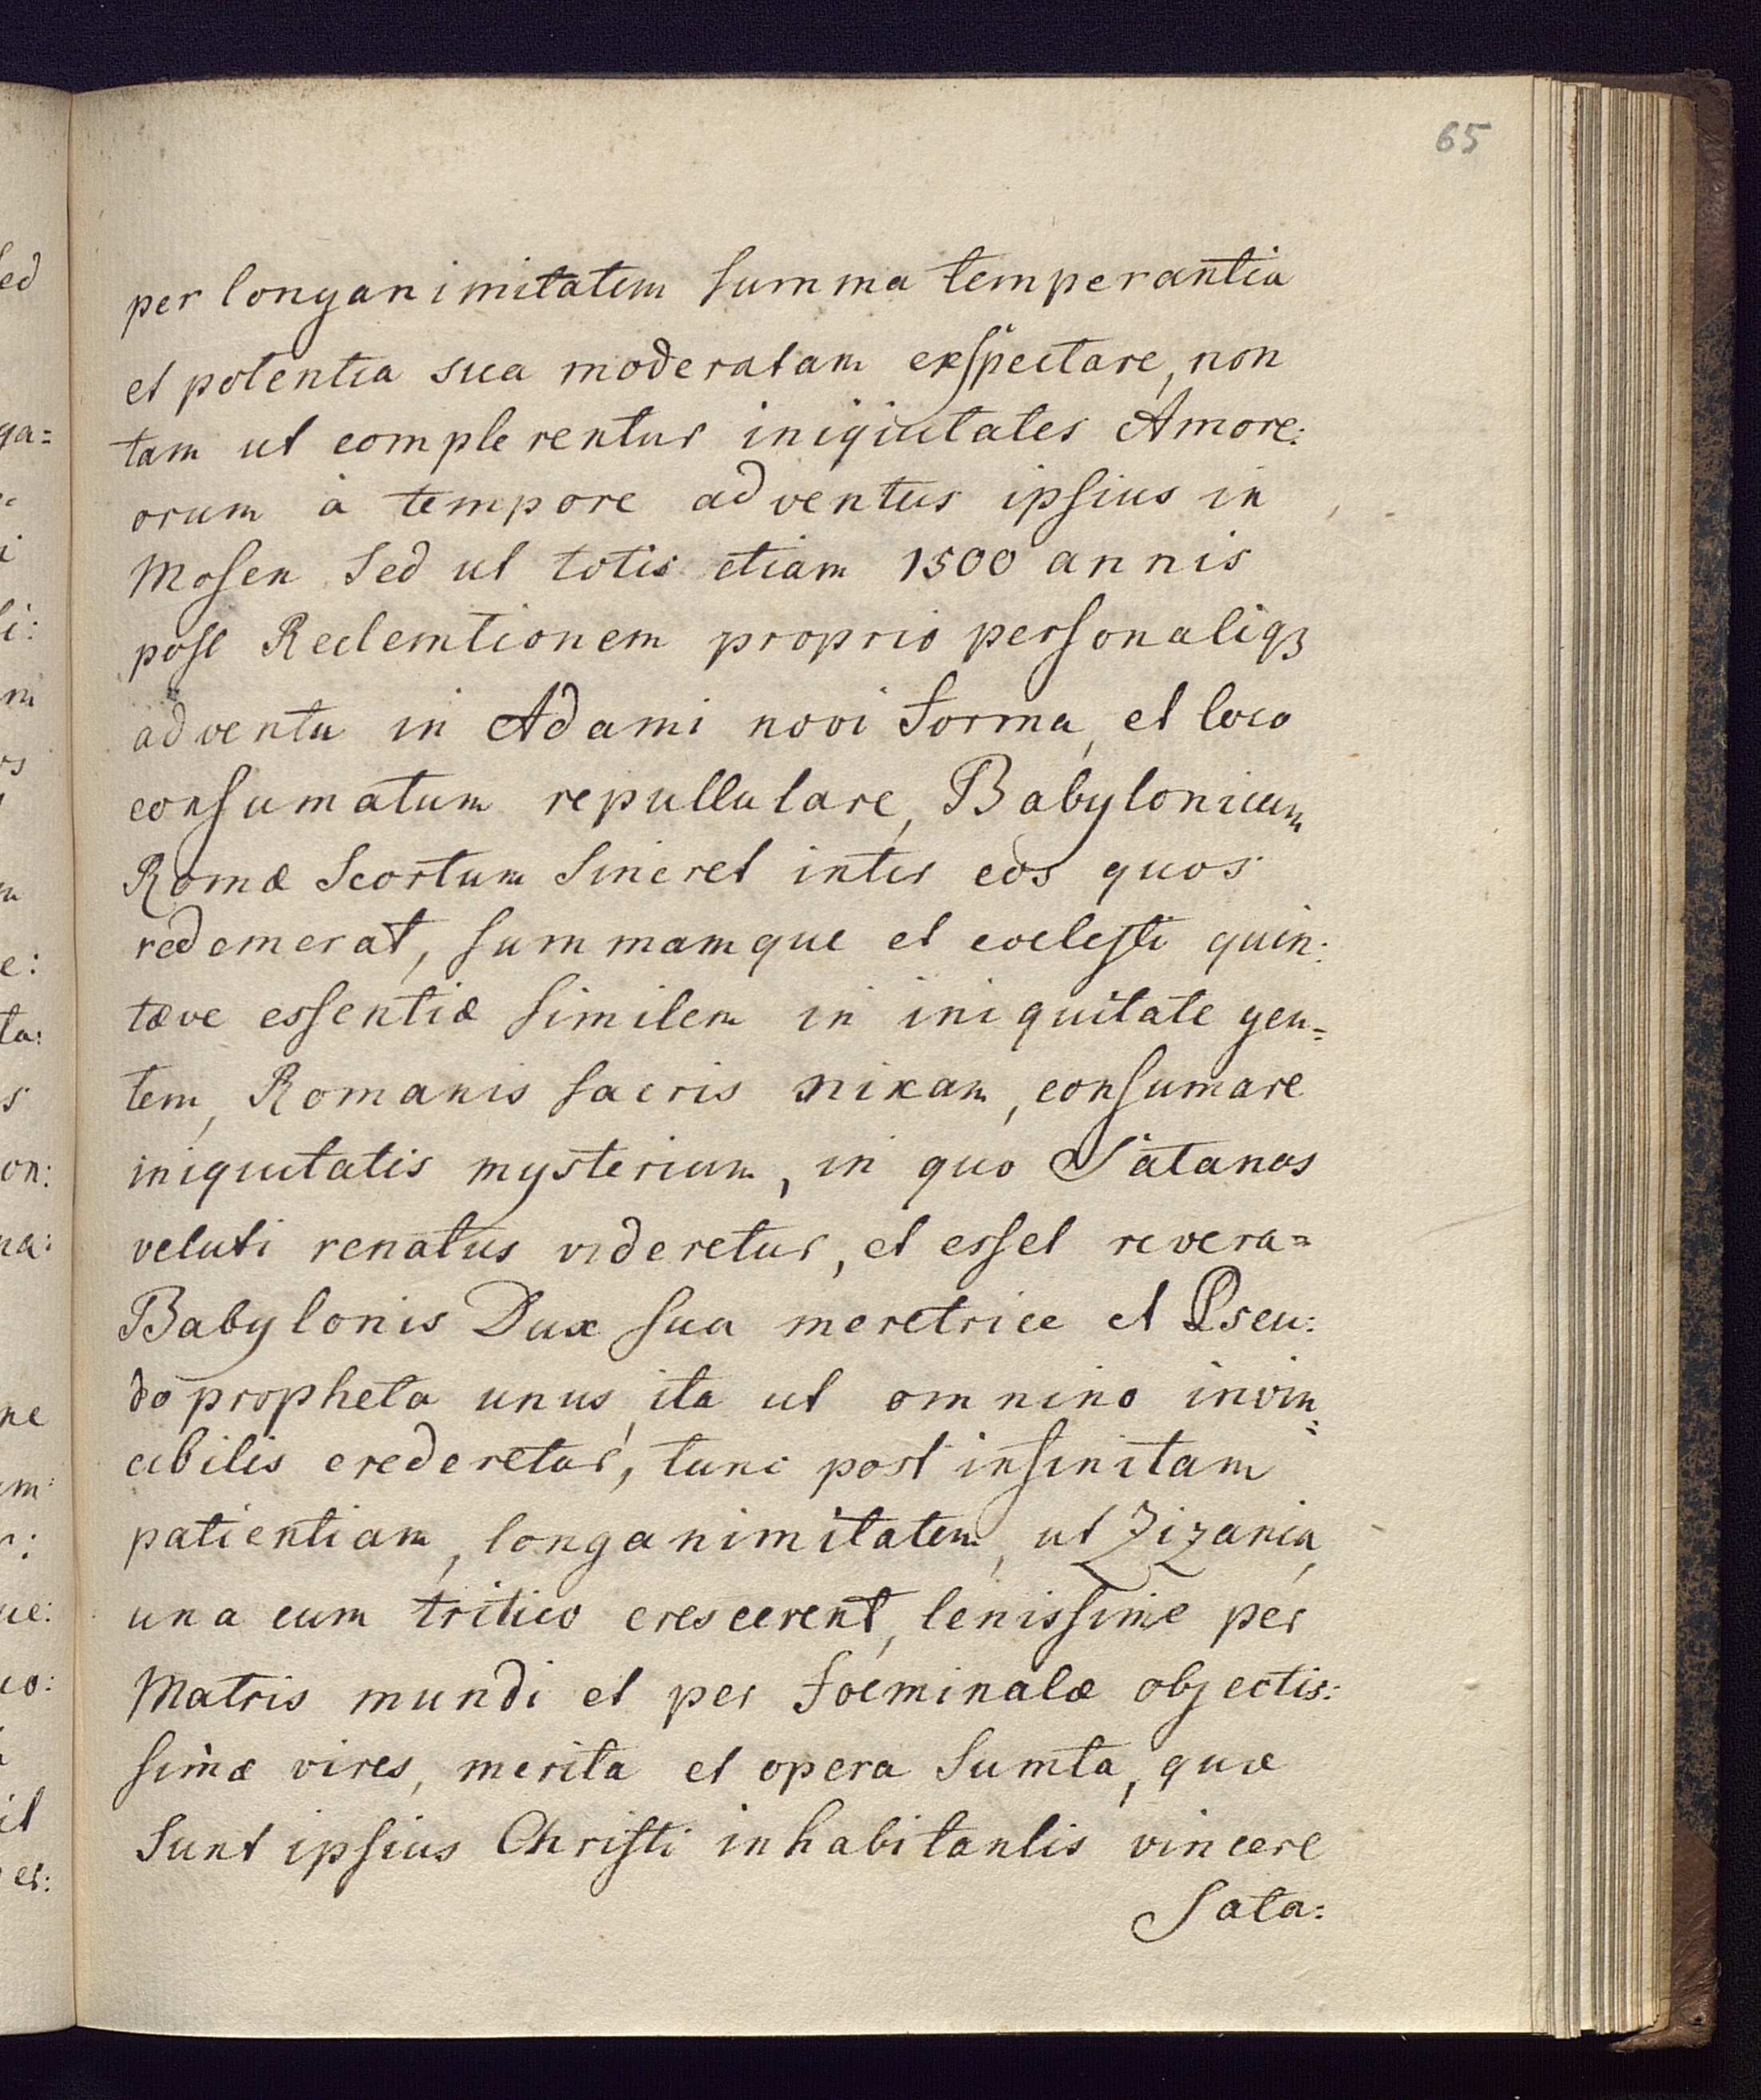 65
per longanimitatem summa temperantia
et potentia sua moderatam exspectare, non
tam ut complerentur iniquitates Amore:
orum à tempore adventus ipsius in
Mosen sed ut totis etiam 1500 annis
post Redemtionem proprio personaliqꝫ
adventu in Adami novi forma, et loco
consumatum repullulare, Babylonicum
Romæ Scortum sineret inter eos quos
redemerat, summamque et coelesti quin:
tæve essentiæ similem in iniquitate gen=
tem, Romanis sacris nixam, consumare
iniquitatis mysterium, in quo Satanas
veluti renatus videretur, et esset revera=
Babylonis Dux sua meretrice et Pseu:
do propheta unus, ita ut omnino invin=
cibilis crederetur, tunc post infinitam
patientiam, longanimitatem, ut Zizania,
una cum tritico crescerent, lenissime per
Matris mundi et per foeminalæ objectis:
simæ vires, merita et opera sumta, quæ
sunt ipsius Christi inhabitantis vincere
Sata:
ed
ga=
i
li:
m
rs
e:
ta:
s
on:
na:
ne
um:
r:
ue:
co:
it
er: